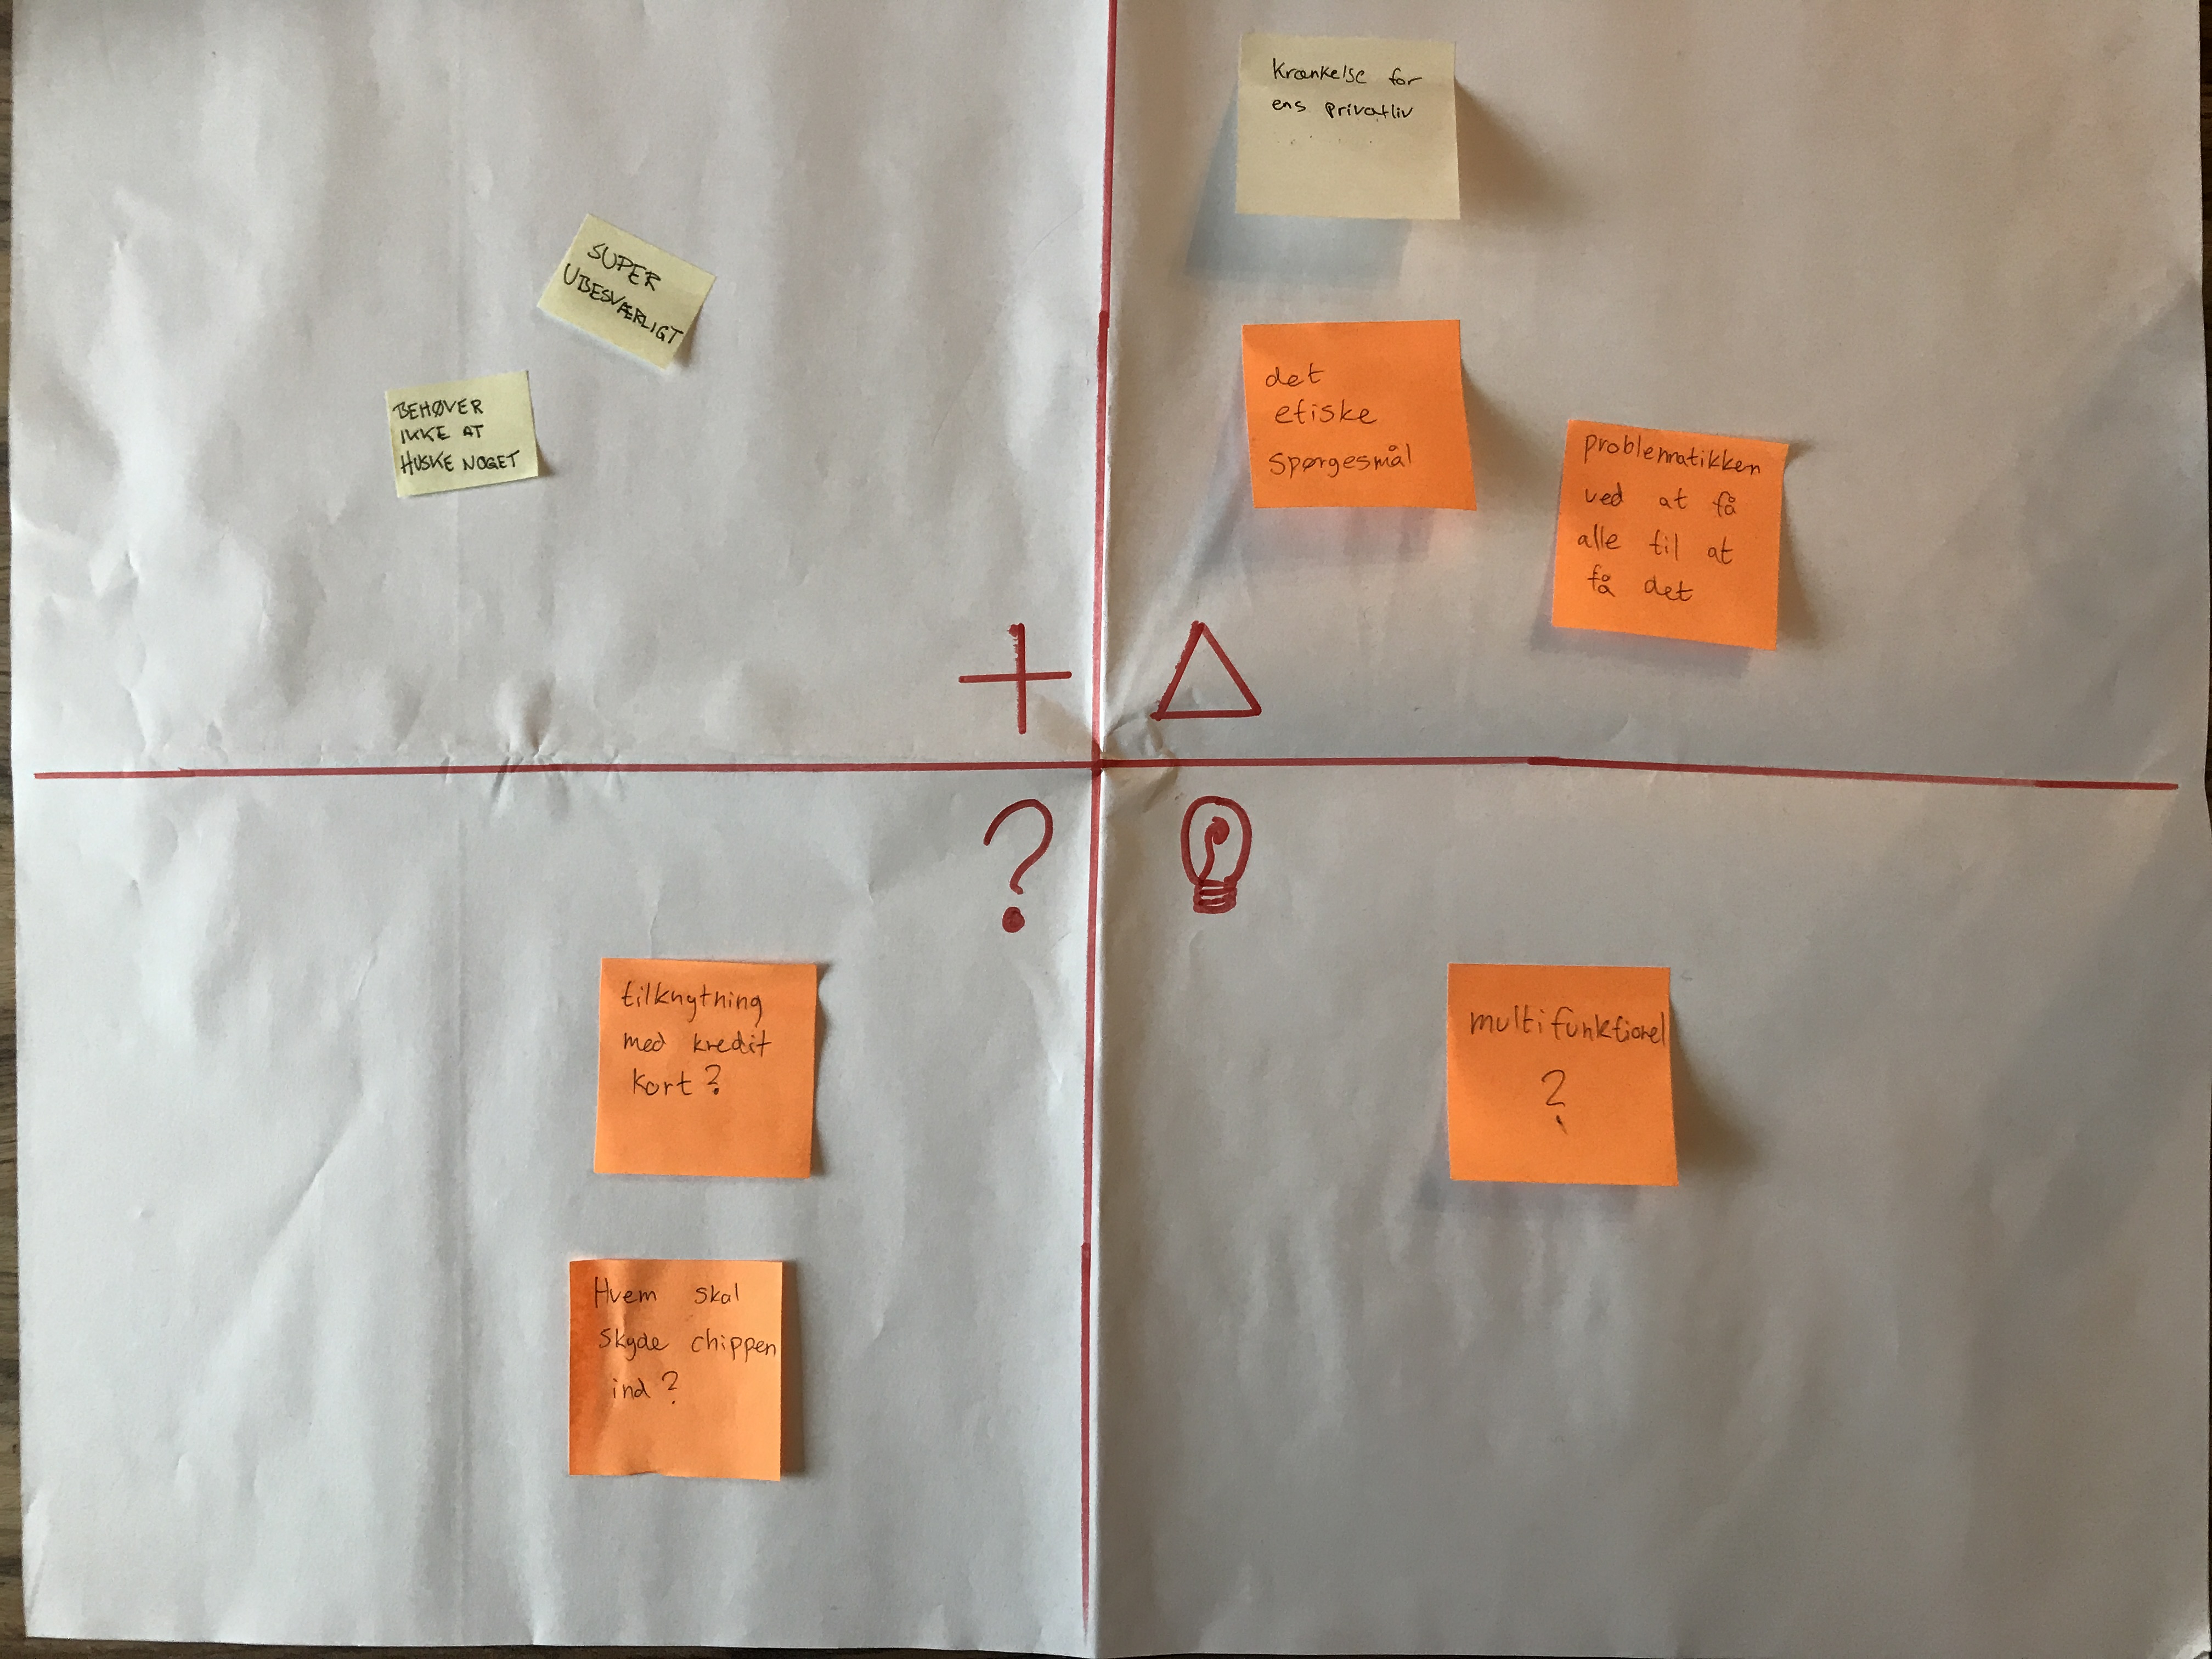 SUPER
UBESVÆRLIGT
BEHØVER
IKKE AT
HUSKE NOGET
Krænkelse for
ens privatliv
det
etiske
spørgesmål
problematikken
ved at få
alle til at
få det
+
?
tilknytning
med kredit
kort?
Hvem skal
skyde chippen
ind?
multifunktionel
?